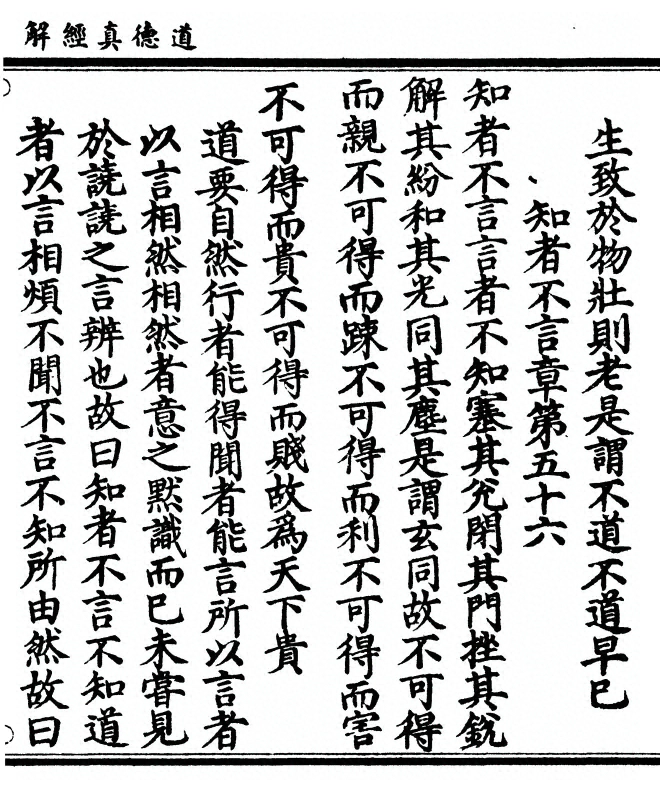 道德真經解
生致於物壯則老是謂不道不道早已
知者不言章第五十六
知者不言言者不知塞其兊閉其門挫其銳
解其紛和其光同其塵是謂玄同故不可得
而親不可得而踈不可得而利不可得而害
不可得而貴不可得而賤故爲天下貴
道要自然行者能得聞者能言所以言者
以言相然相然者意之默識而已未嘗見
於譊譊之言辨也故曰知者不言不知道
者以言相煩不聞不言不知所由然故曰